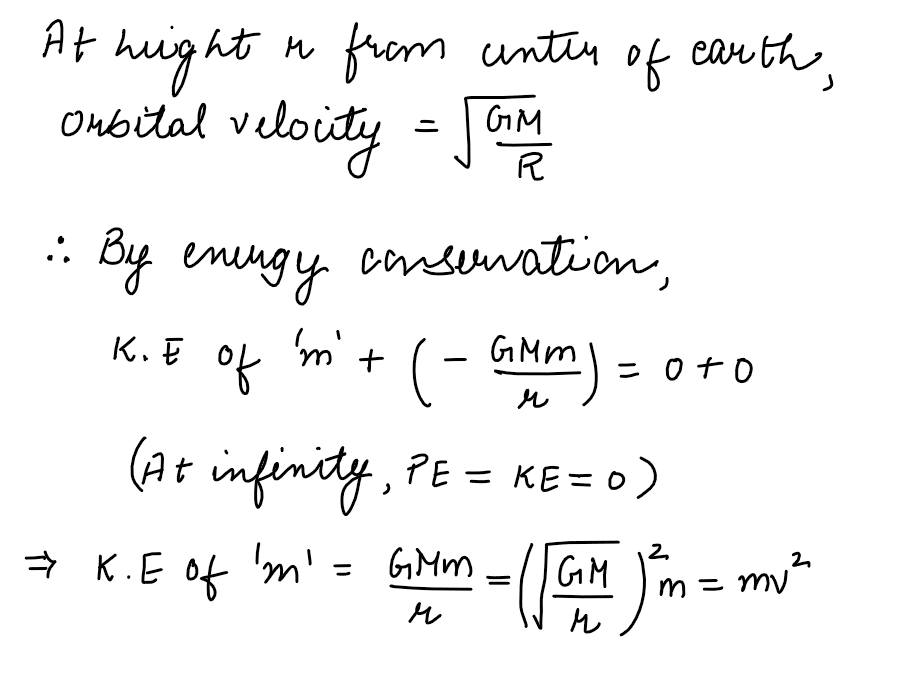 At height r from center of earth,
orbital velocity = √(GM/R)
∴ By energy conservation,
K.E of 'm' + (- GMm/r) = 0 + 0
(At infinity, PE = KE = 0)
⇒ K.E of 'm' = GMm/r = (√(GM/r))²m = mv²